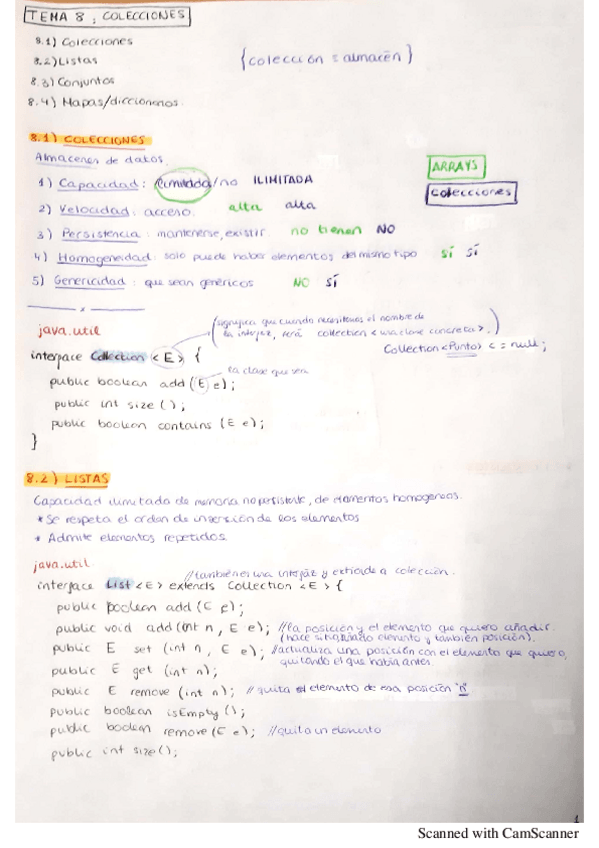 TEMA 8 : COLECCIONES
8.1) Colecciones
8.2) Listas
{colección = almacén}
8.3) Conjuntos
8.4) Mapas/diccionarios.
8.1) COLECCIONES
Almacenes de datos.
ARRAYS
colecciones
1) Capacidad : limitada/no ILIMITADA
2) Velocidad : acceso. alta alta
3) Persistencia : mantenerse, existir no tienen NO
4) Homogeneidad : solo puede haber elementos del mismo tipo SÍ SÍ
5) Genericidad : que sean genéricos NO SÍ
java.util
(significa que cuando necesitemos el nombre de
la interfaz, será collection <una clase concreta>.)
Collection<Punto> c = null;
interface Collection <E> {
la clase que sea
public boolean add (E e);
public int size ();
public boolean contains (E e);
}
8.2) LISTAS
Capacidad ilimitada de memoria no persistente, de elementos homogéneos.
* Se respeta el orden de inserción de los elementos
* Admite elementos repetidos
java.util
//también es una interfaz y extiende a colección.
interface List <E> extends Collection <E> {
public boolean add (E e);
public void add (int n, E e); //la posición y el elemento que quiero añadir.
(hace sitio, añado elemento y también posición).
public E set (int n, E e); //actualiza una posición con el elemento que quiero,
quitando el que había antes.
public E get (int n);
public E remove (int n); // quita el elemento de esa posición "n"
public boolean isEmpty ();
public boolean remove (E e); //quita un elemento
public int size();
1
Scanned with CamScanner